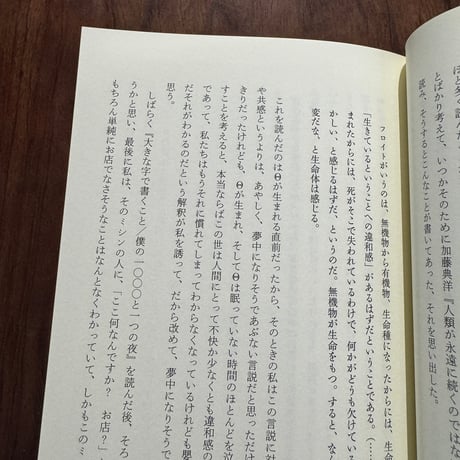 ほど多く読
とばかり考えて、いつかそのために加藤典洋『人類が永遠に続くのではな
読み、そうするとこんなことが書いてあった、それを思い出した。
フロイトがいうのは、無機物から有機物、生命種になったからには、生
「生きているということへの違和感」があるはずだということである。(……
まれたからには、死がそこで失われているわけで、何かがどうも欠けている
かしい、と感じるはずだ、というのだ。無機物が生命をもつ。すると、なん
変だな、と生命体は感じる。
これを読んだのはΘが生まれる直前だったから、そのときの私はこの言説に対
や共感というよりは、あやしく、夢中になりそうであぶない言説だと思っただけ
きりだったけれども、Θが生まれ、そしてΘは眠っていない時間のほとんどを泣
すことを考えると、本当ならばこの世は人間にとって不快か少なくとも違和感の
であって、私たちはもうそれに慣れてしまってわからなくなっているけれども嬰
だそれがわかるのだという解釈が私を誘って、だから改めて、夢中になりそうで
思う。
しばらく『大きな字で書くこと/僕の一〇〇〇と一つの夜』を読んだ後、そろ
うかと思い、最後に私は、そのミシンの人に、「ここ何なんですか? お店?」
もちろん単純にお店でなさそうなことはなんとなくわかっていて、しかもこのミ